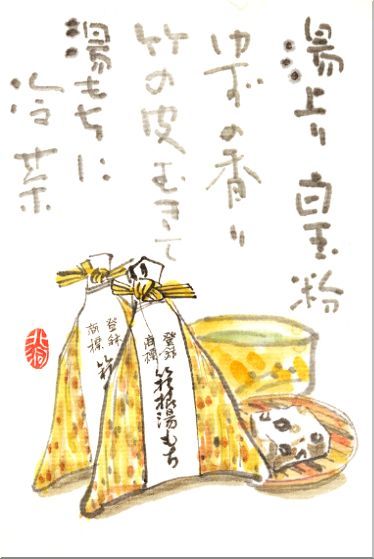 湯上り 白玉粉
ゆずの香り
竹の皮むきて
湯もちに
冷菓
登録
商標
箱根湯もち
登録
商標
箱